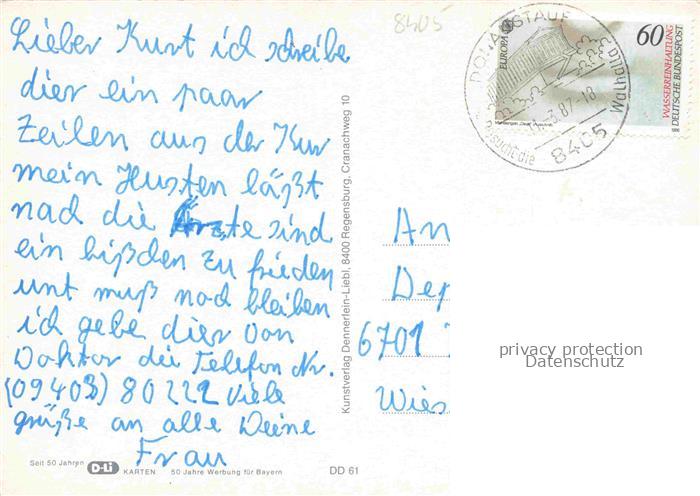 Lieber Kurt ich schreibe
dier ein paar
Zeilen aus der Kur
mein Husten läßt
nach die Ärzte sind
ein bißchen zu frieden
unt muß noch bleiben
ich gebe dier von
Doktor die Telefon Nr.
(09403) 80222 Viele
grüße an alle Deine
Frau
Seit 50 Jahren D-Li KARTEN 50 Jahre Werbung für Bayern
DD 61
Kunstverlag Dennerlein-Liebl, 8400 Regensburg, Cranachweg 10
8405
DONAUSTAUF
.3.87-18
8405
Besucht die Walhalla
EUROPA
60
WASSERREINHALTUNG
DEUTSCHE BUNDESPOST
An
Dep
6701
Wies
privacy protection
Datenschutz